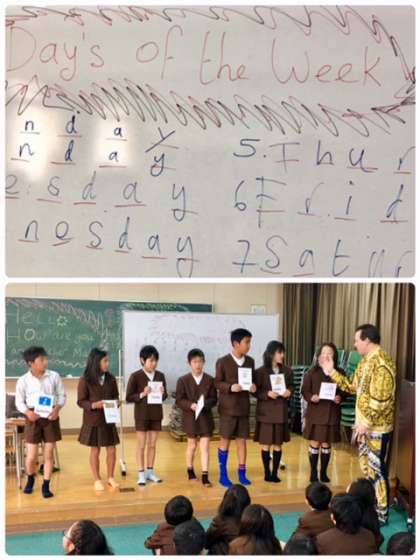 Day's of the Week
n d a y
n d a y
e. s d a y
n e s d a y
5. T h u r
6 F r i d
7 S a t u r
HeLLO
HOw are you